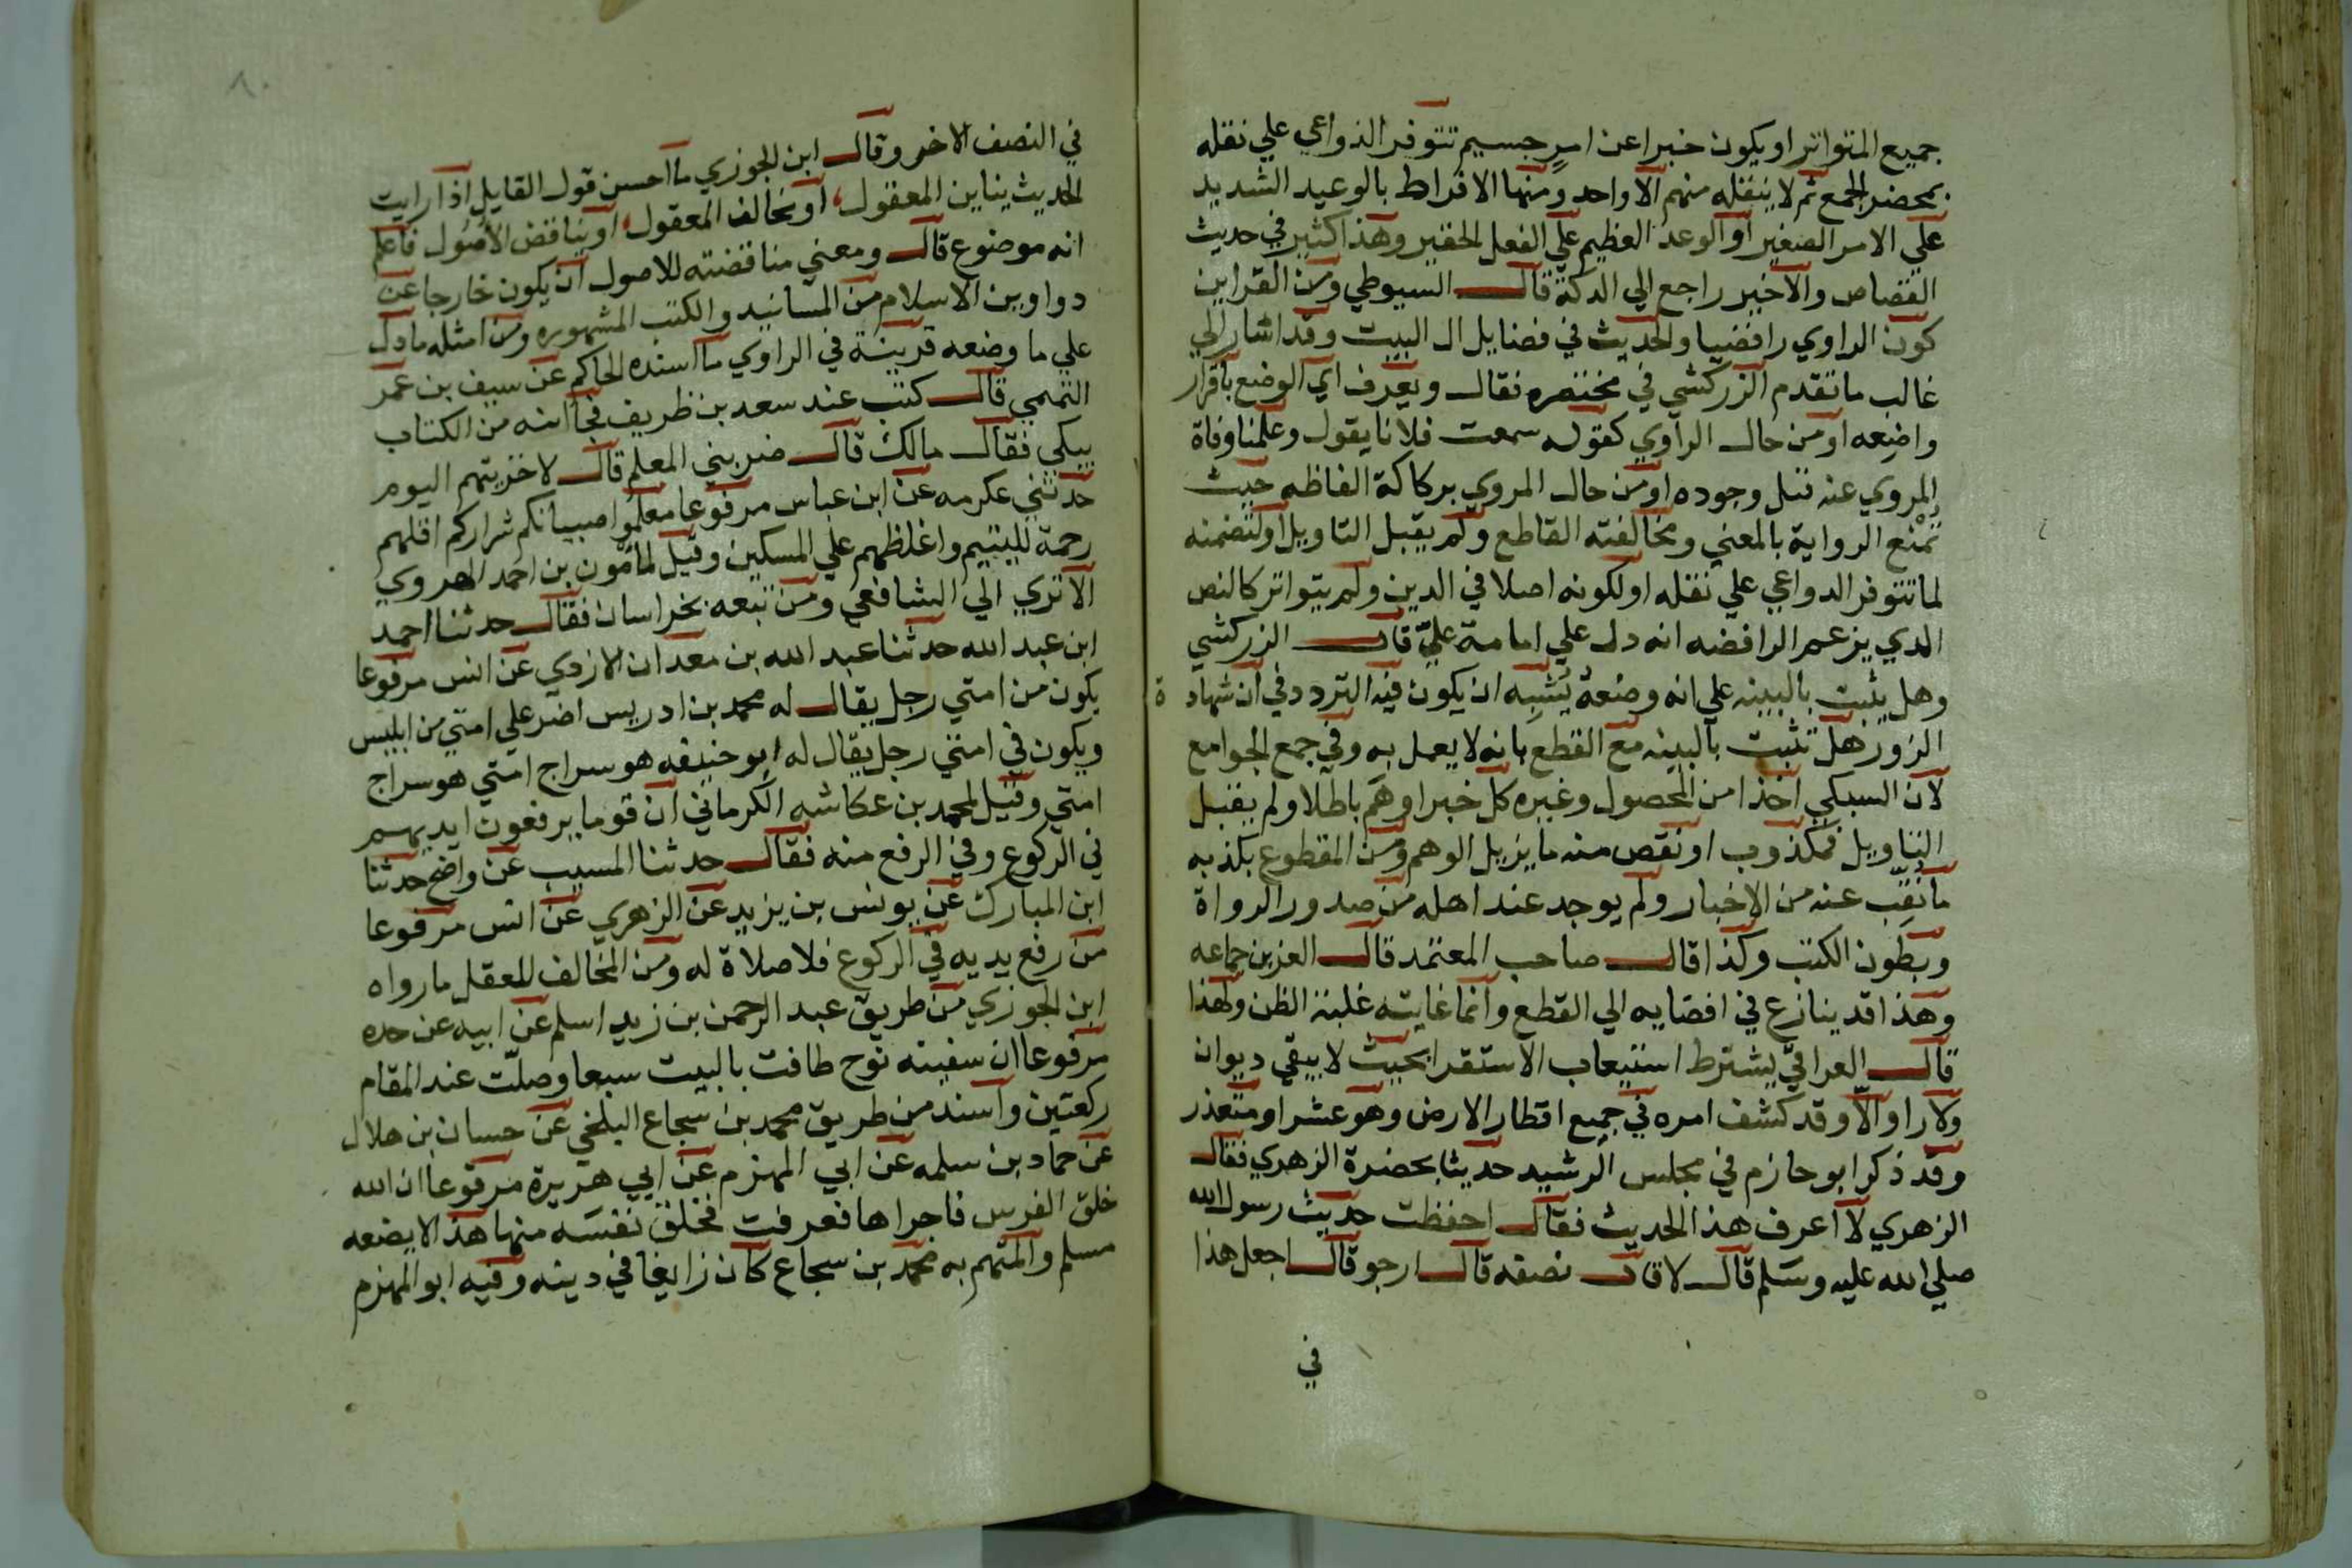 جميع المتواتر او يكون خبرا عن امر جسيم تتوفر الدواعي علي نقله
بمحضر الجمع ثم لا ينقله منهم الا واحد ومنها الافراط بالوعيد الشديد
علي الامر الصغير او الوعد العظيم علي الفعل الحقير وهذا كثير في حديث
القصاص والاخير راجع الي الركة قال السيوطي ومن القراين
كون الراوي رافضيا والحديث في فضايل ال البيت وقد اشار الي
غالب ما تقدم الزركشي في مختصره فقال ويعرف اي الوضع باقرار
واضعه او من حال الراوي كقوله سمعت فلانا يقول وعلمنا وفاة
المروي عنه قبل وجوده او من حال المروي بركاكة الفاظه حيث
تمنع الرواية بالمعني ومخالفته القاطع ولم يقبل التاويل او لتضمنه
لما تتوفر الدواعي علي نقله او لكونه اصلا في الدين ولم يتواتر كالنص
الدي يزعم الرافضه انه دل علي امامة علي قال الزركشي
وهل يثبت بالبينه علي انه وضعه يشبه ان يكون فيه التردد في ان شهادة
الزور هل تثبت بالبينه مع القطع بانه لا يعمل به وفي جمع الجوامع
لابن السبكي اخذا من المحصول وغيره كل خبر اوهم باطلا ولم يقبل
التاويل فمكذوب او نقص منه ما يزيل الوهم ومن المقطوع بكذبه
ما نقب عنه من الاخبار ولم يوجد عند اهله من صدور الرواة
وبطون الكتب وكذا قال صاحب المعتمد قال العز بن جماعه
وهذا قد ينازع في افضايه الي القطع وانما غايته غلبة الظن ولهذا
قال العراقي يشترط استيعاب الاستقرا بحيث لا يبقي ديوان
ولا راو الا وقد كشف امره في جميع اقطار الارض وهو عسر او متعذر
وقد ذكر ابو حازم في مجلس الرشيد حديثا بحضرة الزهري فقال
الزهري لا اعرف هذا الحديث فقال احفظت حديث رسول الله
صلي الله عليه وسلم قال لا قال نصفه قال ارجو قال اجعل هذا
في
في النصف الاخر وقال ابن الجوزي ما احسن قول القايل اذا رايت
الحديث يباين المعقول او يخالف المعقول او يناقض الاصول فاعلم
انه موضوع قال ومعني مناقضته للاصول ان يكون خارجا عن
دواوين الاسلام من المسانيد والكتب المشهوره ومن امثله ما دل
علي ما وضعه قرينة في الراوي ما اسنده الحاكم عن سيف بن عمر
التميمي قال كنت عند سعد بن ظريف فجا ابنه من الكتاب
يبكي فقال مالك قال ضربني المعلم قال لاخزينهم اليوم
حدثني عكرمه عن ابن عباس مرفوعا معلموا صبيانكم شراركم اقلهم
رحمة لليتيم واغلظهم علي المسكين وقيل لمامون بن احمد الهروي
الا تري الي الشافعي ومن تبعه بخراسان فقال حدثنا احمد
ابن عبد الله حدثنا عبد الله بن معدان الازدي عن انس مرفوعا
يكون من امتي رجل يقال له محمد بن ادريس اضر علي امتي من ابليس
ويكون في امتي رجل يقال له ابو حنيفه هو سراج امتي هو سراج
امتي وقيل لمحمد بن عكاشه الكرماني ان قوما يرفعون ايديهم
في الركوع وفي الرفع منه فقال حدثنا المسيب عن واضح حدثنا
ابن المبارك عن يونس بن يزيد عن الزهري عن انس مرفوعا
من رفع يديه في الركوع فلا صلاة له ومن المخالف للعقل ما رواه
ابن الجوزي من طريق عبد الرحمن بن زيد اسلم عن ابيه عن جده
مرفوعا ان سفينه نوح طافت بالبيت سبعا وصلت عند المقام
ركعتين واسند من طريق محمد بن شجاع البلخي عن حسان بن هلال
عن حماد بن سلمه عن ابي المهزم عن ابي هريرة مرفوعا ان الله
خلق الفرس فاجراها فعرقت فخلق نفسه منها هذا لا يضعه
مسلم والمتهم به محمد بن شجاع كان زايغا في دينه وفيه ابو المهزم